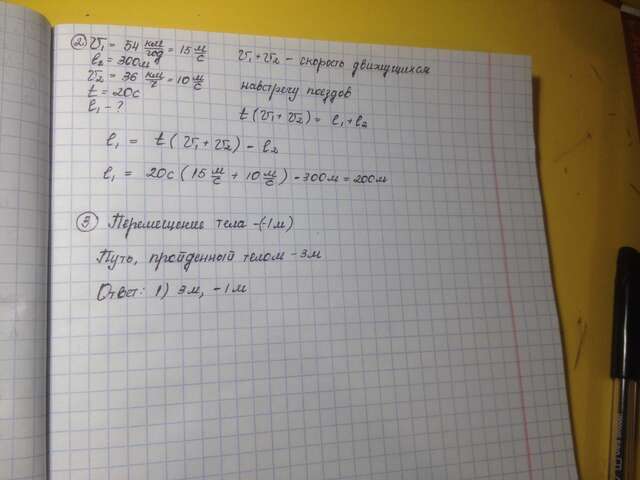 ② v₁ = 54 км/час = 15 м/с
l₂ = 300м
v₂ = 36 км/ч = 10 м/с
t = 20с
l₁ - ?
v₁ + v₂ - скорость движущихся
навстречу поездов
t (v₁ + v₂) = l₁ + l₂
l₁ = t (v₁ + v₂) - l₂
l₁ = 20с (15 м/с + 10 м/с) - 300м = 200м
③ Перемещение тела - (-1м)
Путь, пройденный телом - 3м
Ответ: 1) 3м, -1м